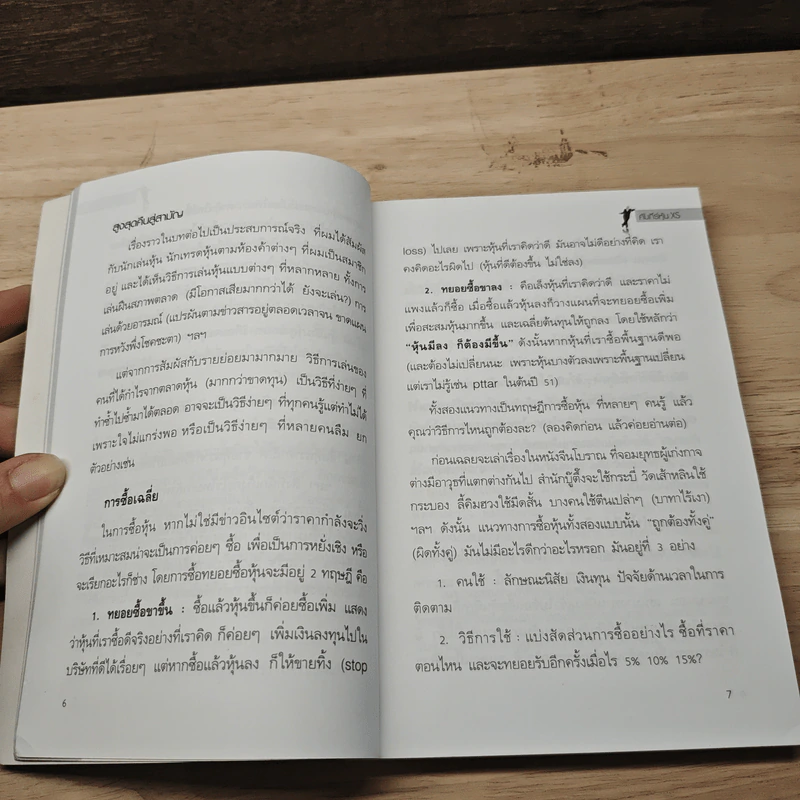 สูงสุดคืนสู่สามัญ
เรื่องราวในบทต่อไปเป็นประสบการณ์จริง ที่ผมได้สัมผัส
กับนักเล่นหุ้น นักเทรดหุ้นตามห้องค้าต่างๆ ที่ผมเป็นสมาชิก
อยู่ และได้เห็นวิธีการเล่นหุ้นแบบต่างๆ ที่หลากหลาย ทั้งการ
เล่นฝืนสภาพตลาด (มีโอกาสเสียมากกว่าได้ ยังจะเล่น?) การ
เล่นด้วยอารมณ์ (แปรผันตามข่าวสารอยู่ตลอดเวลาจน ขาดแผน
การหวังพึ่งโชคชะตา) ฯลฯ
แต่จากการสัมผัสกับรายย่อยมามากมาย วิธีการเล่นของ
คนที่ได้กำไรจากตลาดหุ้น (มากกว่าขาดทุน) เป็นวิธีที่ง่ายๆ ที่
ทำซ้ำไปซ้ำมาได้ตลอด อาจจะเป็นวิธีง่ายๆ ที่ทุกคนรู้แต่ทำไม่ได้
เพราะใจไม่แกร่งพอ หรือเป็นวิธีง่ายๆ ที่หลายคนลืม ยก
ตัวอย่างเช่น
การซื้อเฉลี่ย
ในการซื้อหุ้น หากไม่ใช่มีข่าวอินไซต์ว่าราคากำลังจะวิ่ง
วิธีที่เหมาะสมน่าจะเป็นการค่อยๆ ซื้อ เพื่อเป็นการหยั่งเชิง หรือ
จะเรียกอะไรก็ช่าง โดยการซื้อทยอยซื้อหุ้นจะมีอยู่ 2 ทฤษฎี คือ
1. ทยอยซื้อขาขึ้น : ซื้อแล้วหุ้นขึ้นก็ค่อยซื้อเพิ่ม แสดง
ว่าหุ้นที่เราซื้อดีจริงอย่างที่เราคิด ก็ค่อยๆ เพิ่มเงินลงทุนไปใน
บริษัทที่ดีได้เรื่อยๆ แต่หากซื้อแล้วหุ้นลง ก็ให้ขายทิ้ง (stop
6
คัมภีร์หุ้น XS
loss) ไปเลย เพราะหุ้นที่เราคิดว่าดี มันอาจไม่ดีอย่างที่คิด เรา
คงคิดอะไรผิดไป (หุ้นที่ดีต้องขึ้น ไม่ใช่ลง)
2. ทยอยซื้อขาลง : คือเล็งหุ้นที่เราคิดว่าดี และราคาไม่
แพงแล้วก็ซื้อ เมื่อซื้อแล้วหุ้นลงก็วางแผนที่จะทยอยซื้อเพิ่ม
เพื่อสะสมหุ้นมากขึ้น และเฉลี่ยต้นทุนให้ถูกลง โดยใช้หลักว่า
“หุ้นมีลง ก็ต้องมีขึ้น” ดังนั้นหากหุ้นที่เราซื้อพื้นฐานดีพอ
(และต้องไม่เปลี่ยนนะ เพราะหุ้นบางตัวลงเพราะพื้นฐานเปลี่ยน
แต่เราไม่รู้เช่น pttar ในต้นปี 51)
ทั้งสองแนวทางเป็นทฤษฎีการซื้อหุ้น ที่หลายๆ คนรู้ แล้ว
คุณว่าวิธีการไหนถูกต้องละ? (ลองคิดก่อน แล้วค่อยอ่านต่อ)
ก่อนเฉลยจะเล่าเรื่องในหนังจีนโบราณ ที่จอมยุทธผู้เก่งกาจ
ต่างมีอาวุธที่แตกต่างกันไป สำนักบู๊ตึ๊งจะใช้กระบี่ วัดเส้าหลินใช้
กระบอง ลี้คิมฮวงใช้มีดสั้น บางคนใช้ตีนเปล่าๆ (บาทาไร้เงา)
ฯลฯ ดังนั้น แนวทางการซื้อหุ้นทั้งสองแบบนั้น “ถูกต้องทั้งคู่”
(ผิดทั้งคู่) มันไม่มีอะไรดีกว่าอะไรหรอก มันอยู่ที่ 3 อย่าง
1. คนใช้ : ลักษณะนิสัย เงินทุน ปัจจัยด้านเวลาในการ
ติดตาม
2. วิธีการใช้ : แบ่งสัดส่วนการซื้ออย่างไร ซื้อที่ราคา
ตอนไหน และจะทยอยรับอีกครั้งเมื่อไร 5% 10% 15%?
7